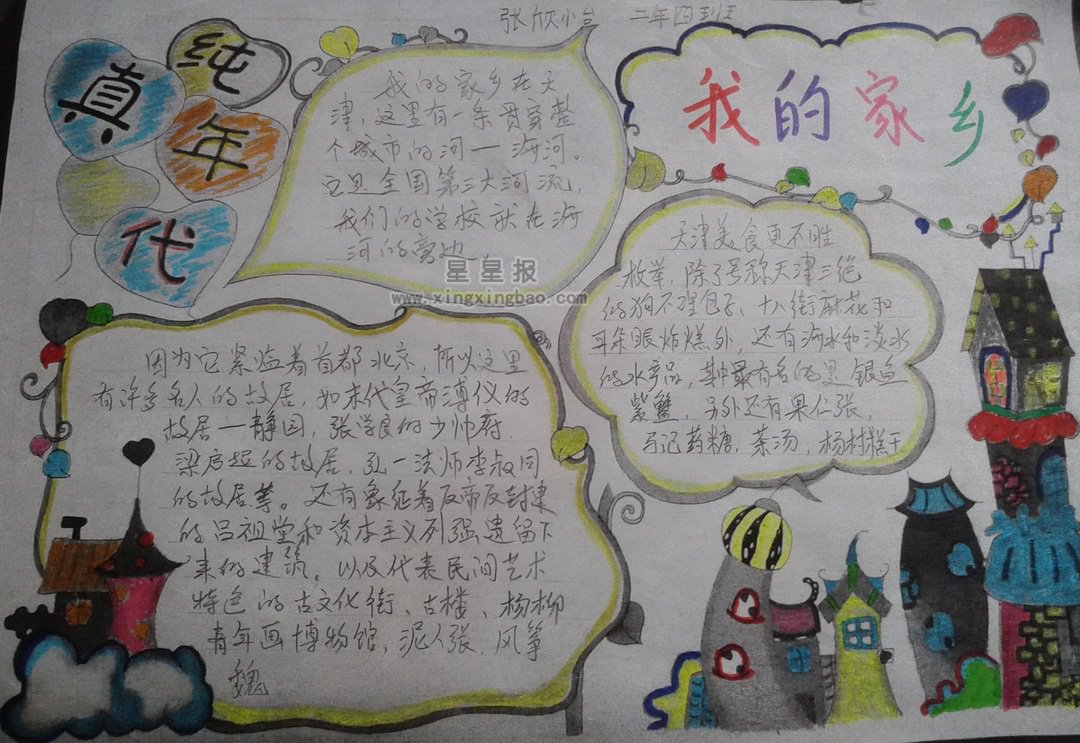 张欣 二年四班
纯真年代
我的家乡
我的家乡在天
津，这里有一条贯穿整
个城市的河一海河。
它是全国第三大河流，
我们的学校就在海
河的旁边。
星星报
www.xingxingbao.com
天津美食更不胜
枚举，除了号称天津三绝
的狗不理包子、十八街麻花和
耳朵眼炸糕外，还有海水和淡水
的水产品，其中最有名的是银鱼
紫蟹，另外还有果仁张，
马记药糖，茶汤，杨村糕干
因为它紧临着首都北京，所以这里
有许多名人的故居，如末代皇帝溥仪的
故居一静园，张学良的少帅府，
梁启超的故居，弘一法师李叔同
的故居等。还有象征着反帝反封建
的吕祖堂和资本主义列强遗留下
来的建筑。以及代表民间艺术
特色的古文化街、古楼、杨柳
青年画博物馆，泥人张，风筝
魏